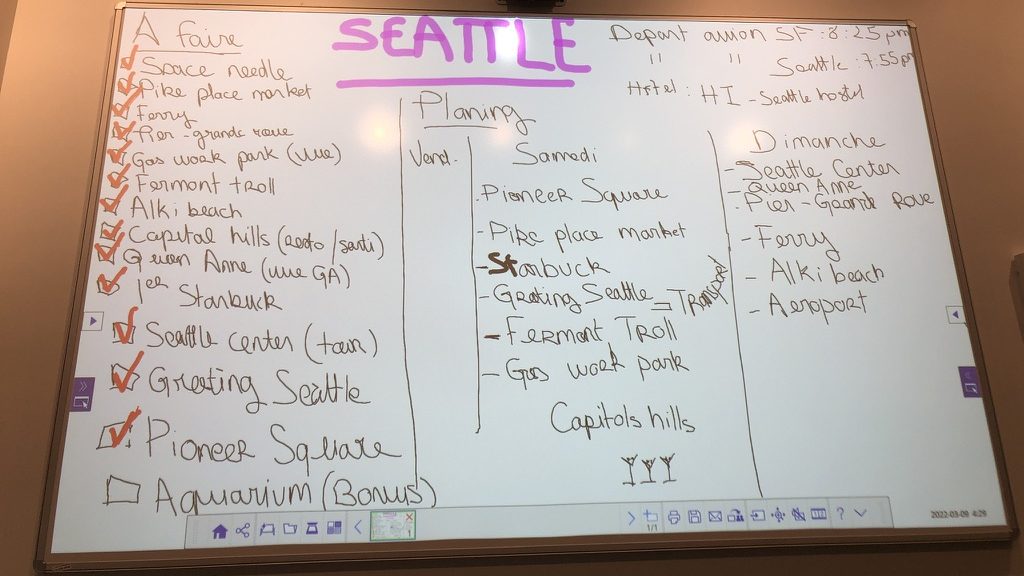 SEATTLE
A faire
Space needle
Pike place market
Ferry
Pier - grande roue
Gas work park (vue)
Fermont troll
Alki beach
Capital hills (resto / santi)
Queen Anne (vue GA)
1er Starbuck
Seattle center (tour)
Greeting Seattle
Pioneer Square
Aquarium (Bonus)
Depart avion SF : 8:25 pm
" " Seattle : 7:55 pm
Hotel : HI - Seattle hostel
Planing
Vend.
Samedi
. Pioneer Square
- Pike place market
- Starbuck
- Greating Seattle
Transport
- Fermont Troll
- Gas work park
Capitols hills
Dimanche
- Seattle Center
- Queen Anne
- Pier - Grande Roue
- Ferry
- Alki beach
- Aeroport
1/1
1
?
2022-03-09 4:29